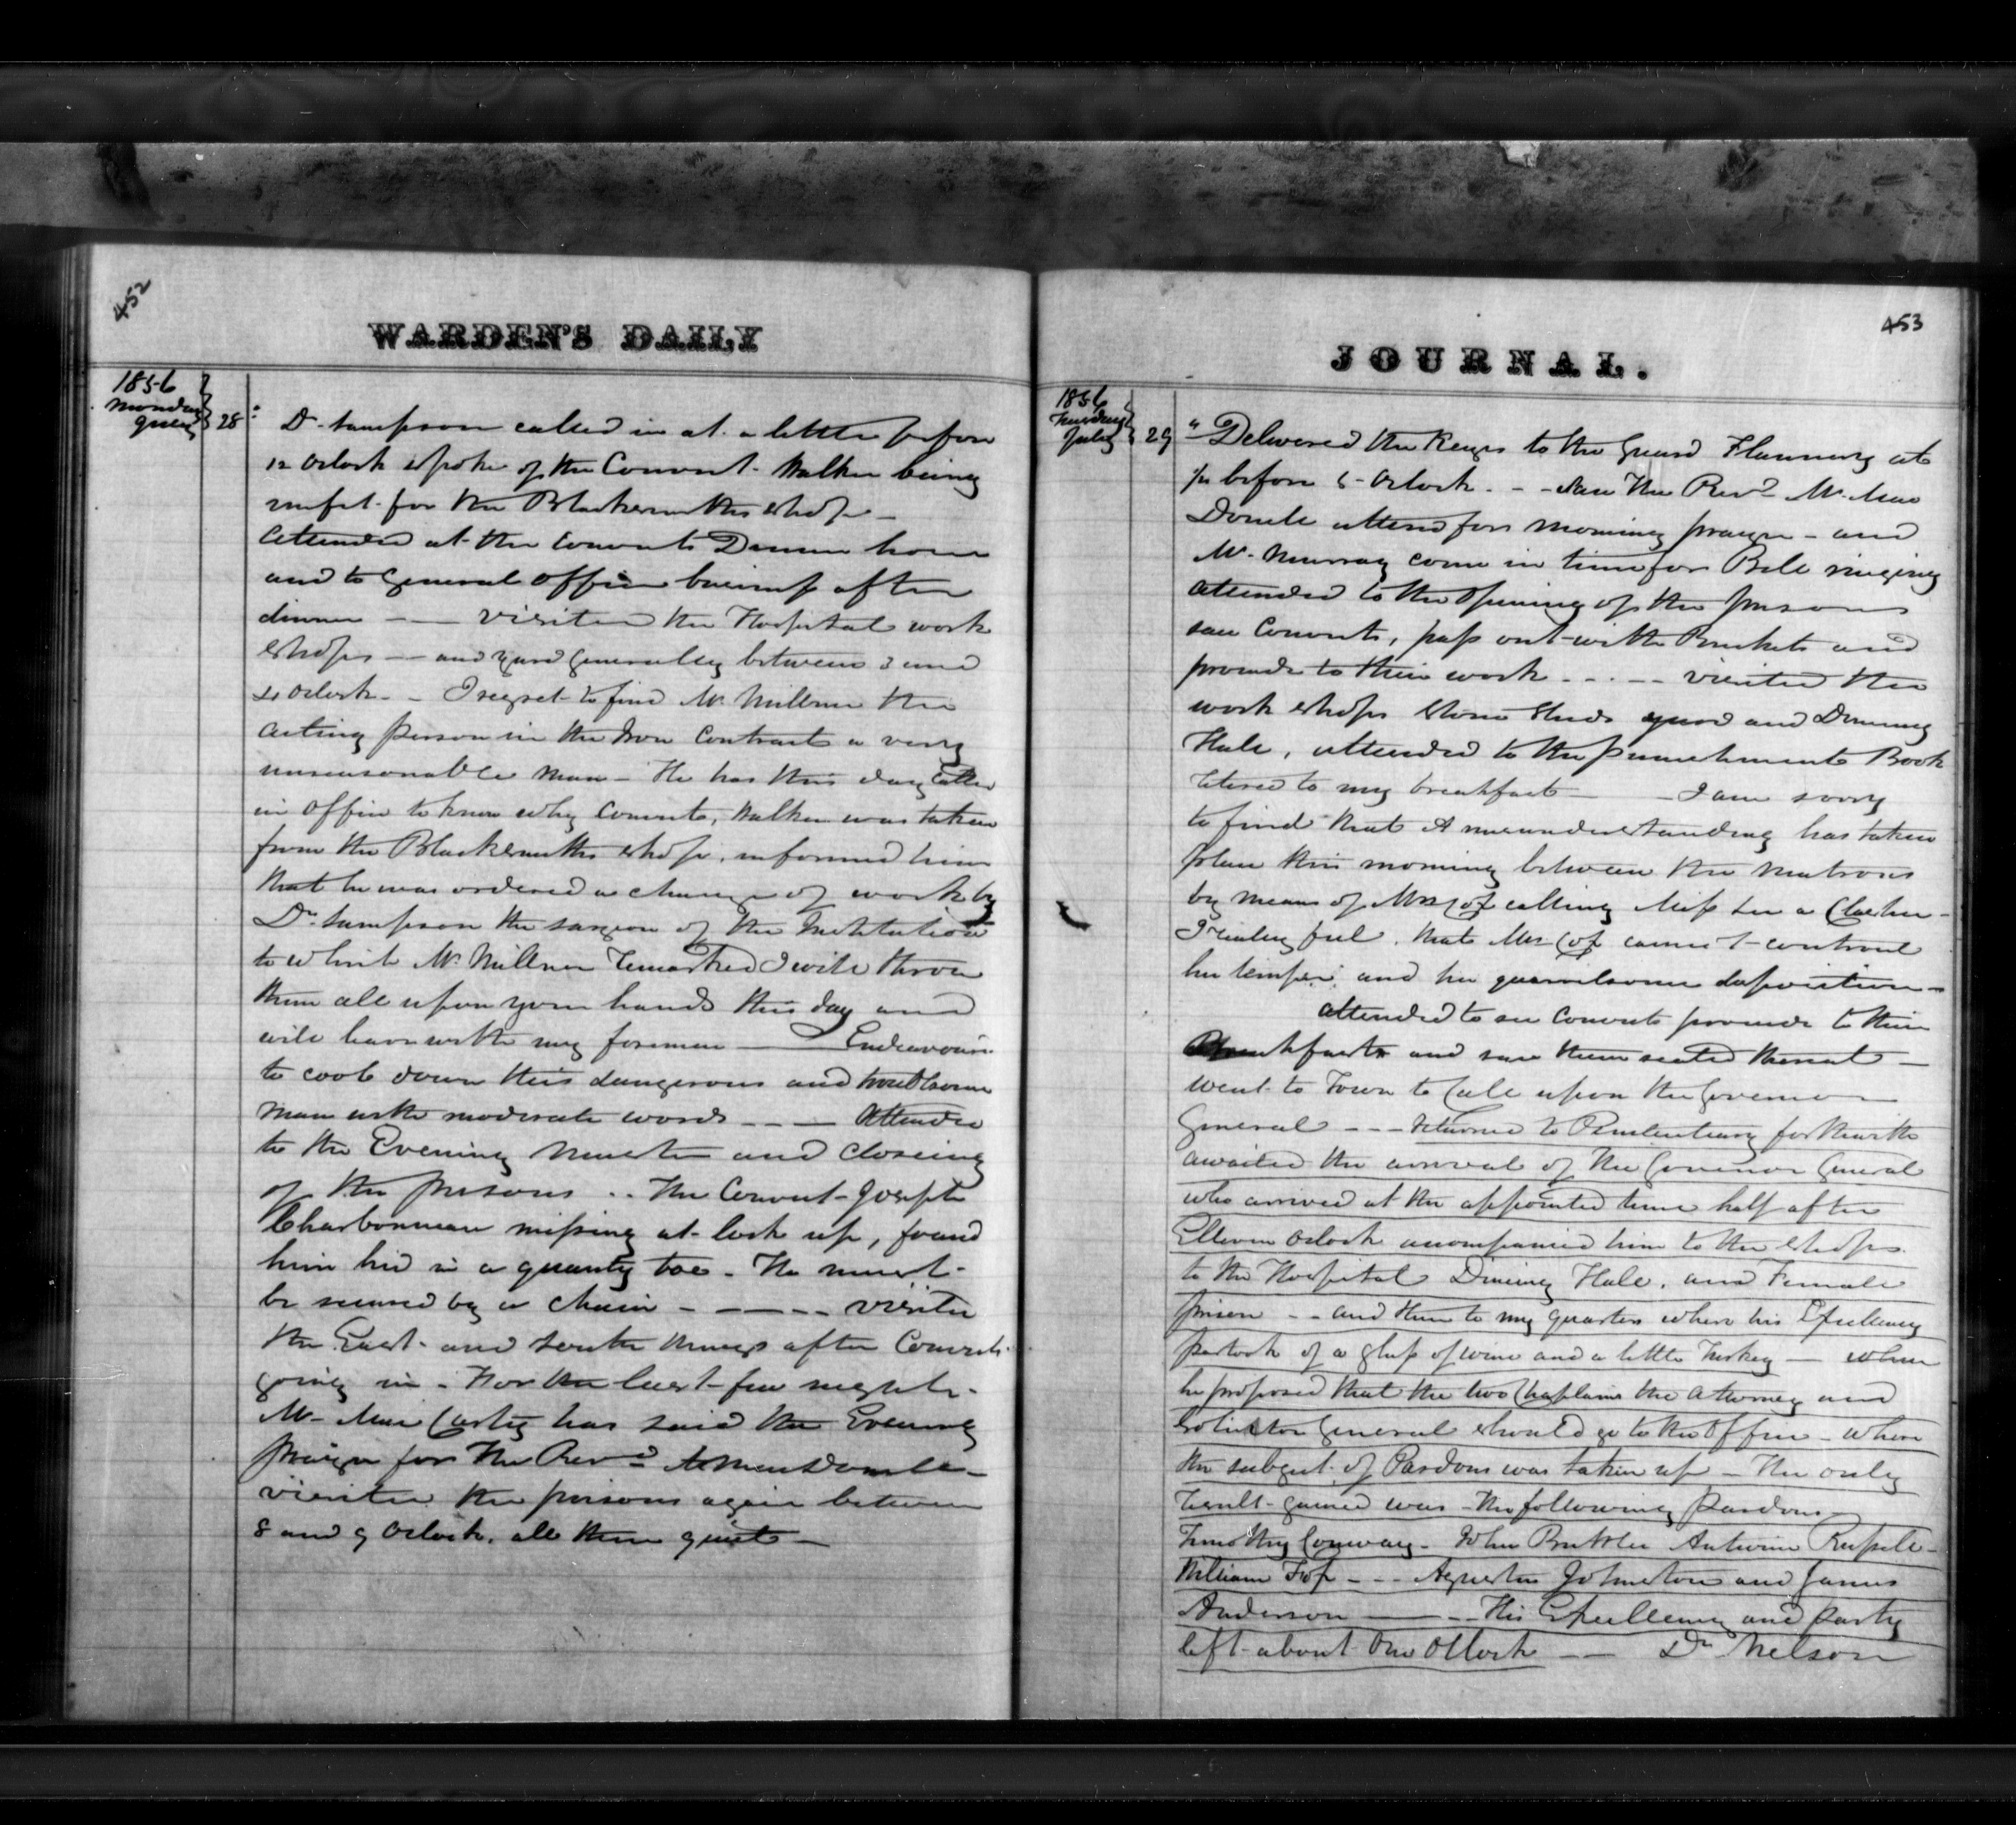 452
WARDEN'S DAILY
1856
Monday
July 28
Dr Sampson called in at a little before
12 Oclock spoke of the Convict Walker being
unfit for the Blacksmiths shop
Attended at the Convicts Dinner hour
and to General office business after
dinner — — visited the Hospital work
shops — and yard generally between 3 and
4 Oclock — I regret to find Mr Millner the
acting person in the Iron Contract a very
unreasonable man — He has this day called
in office to know why Convict, Walker was taken
from the Blacksmiths shop, informed him
that he was ordered a change of work by
Dr Sampson the surgeon of the Institution
to which Mr Millner Remarked I will throw
them all upon your hands this day and
will leave with my foremen — Endeavour
to cool down this dangerous and troublsome
man with moderate words — — — Attended
to the Evening Muster and closeing
of the prisons .. The Convict Joseph
Charbonneau missing at lock up, found
him hid in a quarry
be secured by a chain — — — — visited
the East and South Wings after Convicts
going in — For the last few nights
Mr Mac Carty has said the Evening
prayer for The Revd
visited the prisons again between
8 and 9 Oclock. all then quiet —
453
JOURNAL.
1856
Tuesday
July 29
" Delivered the Keys to the Guard Flannery at
1/4 before 5 Oclock — — saw The Revd Mr Mac
Donell attend for morning prayer — and
Mr Murray come in time for Bell ringing
attended to the Opening of the prisons
saw Convicts, pass out with Buckets and
proceed to their work — . — — visited the
work shops Stone Sheds yard and Dinning
Hall, attended to the punishment Book
retired to my breakfast — — I am sorry
to find that A misunderstanding has taken
place this morning between the Matrons
by means of Mrs Cox calling Miss
I realey feel, that Mrs Cox cannot controul
her temper and her quarrelsome disposition —
attended to see Convicts proceed to their
Breakfasts and saw them seated thereat —
went to Town to Call upon the Governor
General — — — returned to Penitentiary forthwith
awaited the arrival of the Governor General
who arrived at the appointed time half after
Elleven Oclock accompanied him to the shops
to the Hospital Dining Hall, and Female
prison — — and then to my quarters where his Excellency
partook of a glass of wine and a little Turkey — when
he proposed that the two Chaplains the Attorney and
Solicitor General should go to the Office — where
the subject of Pardons was taken up — the only
result gained was — the following pardons
Timothy Conway — John Antoine
William Fox — — — Johnston and James
Anderson — — — His Excellency and party
left about One Oclock — — Dr Nelson